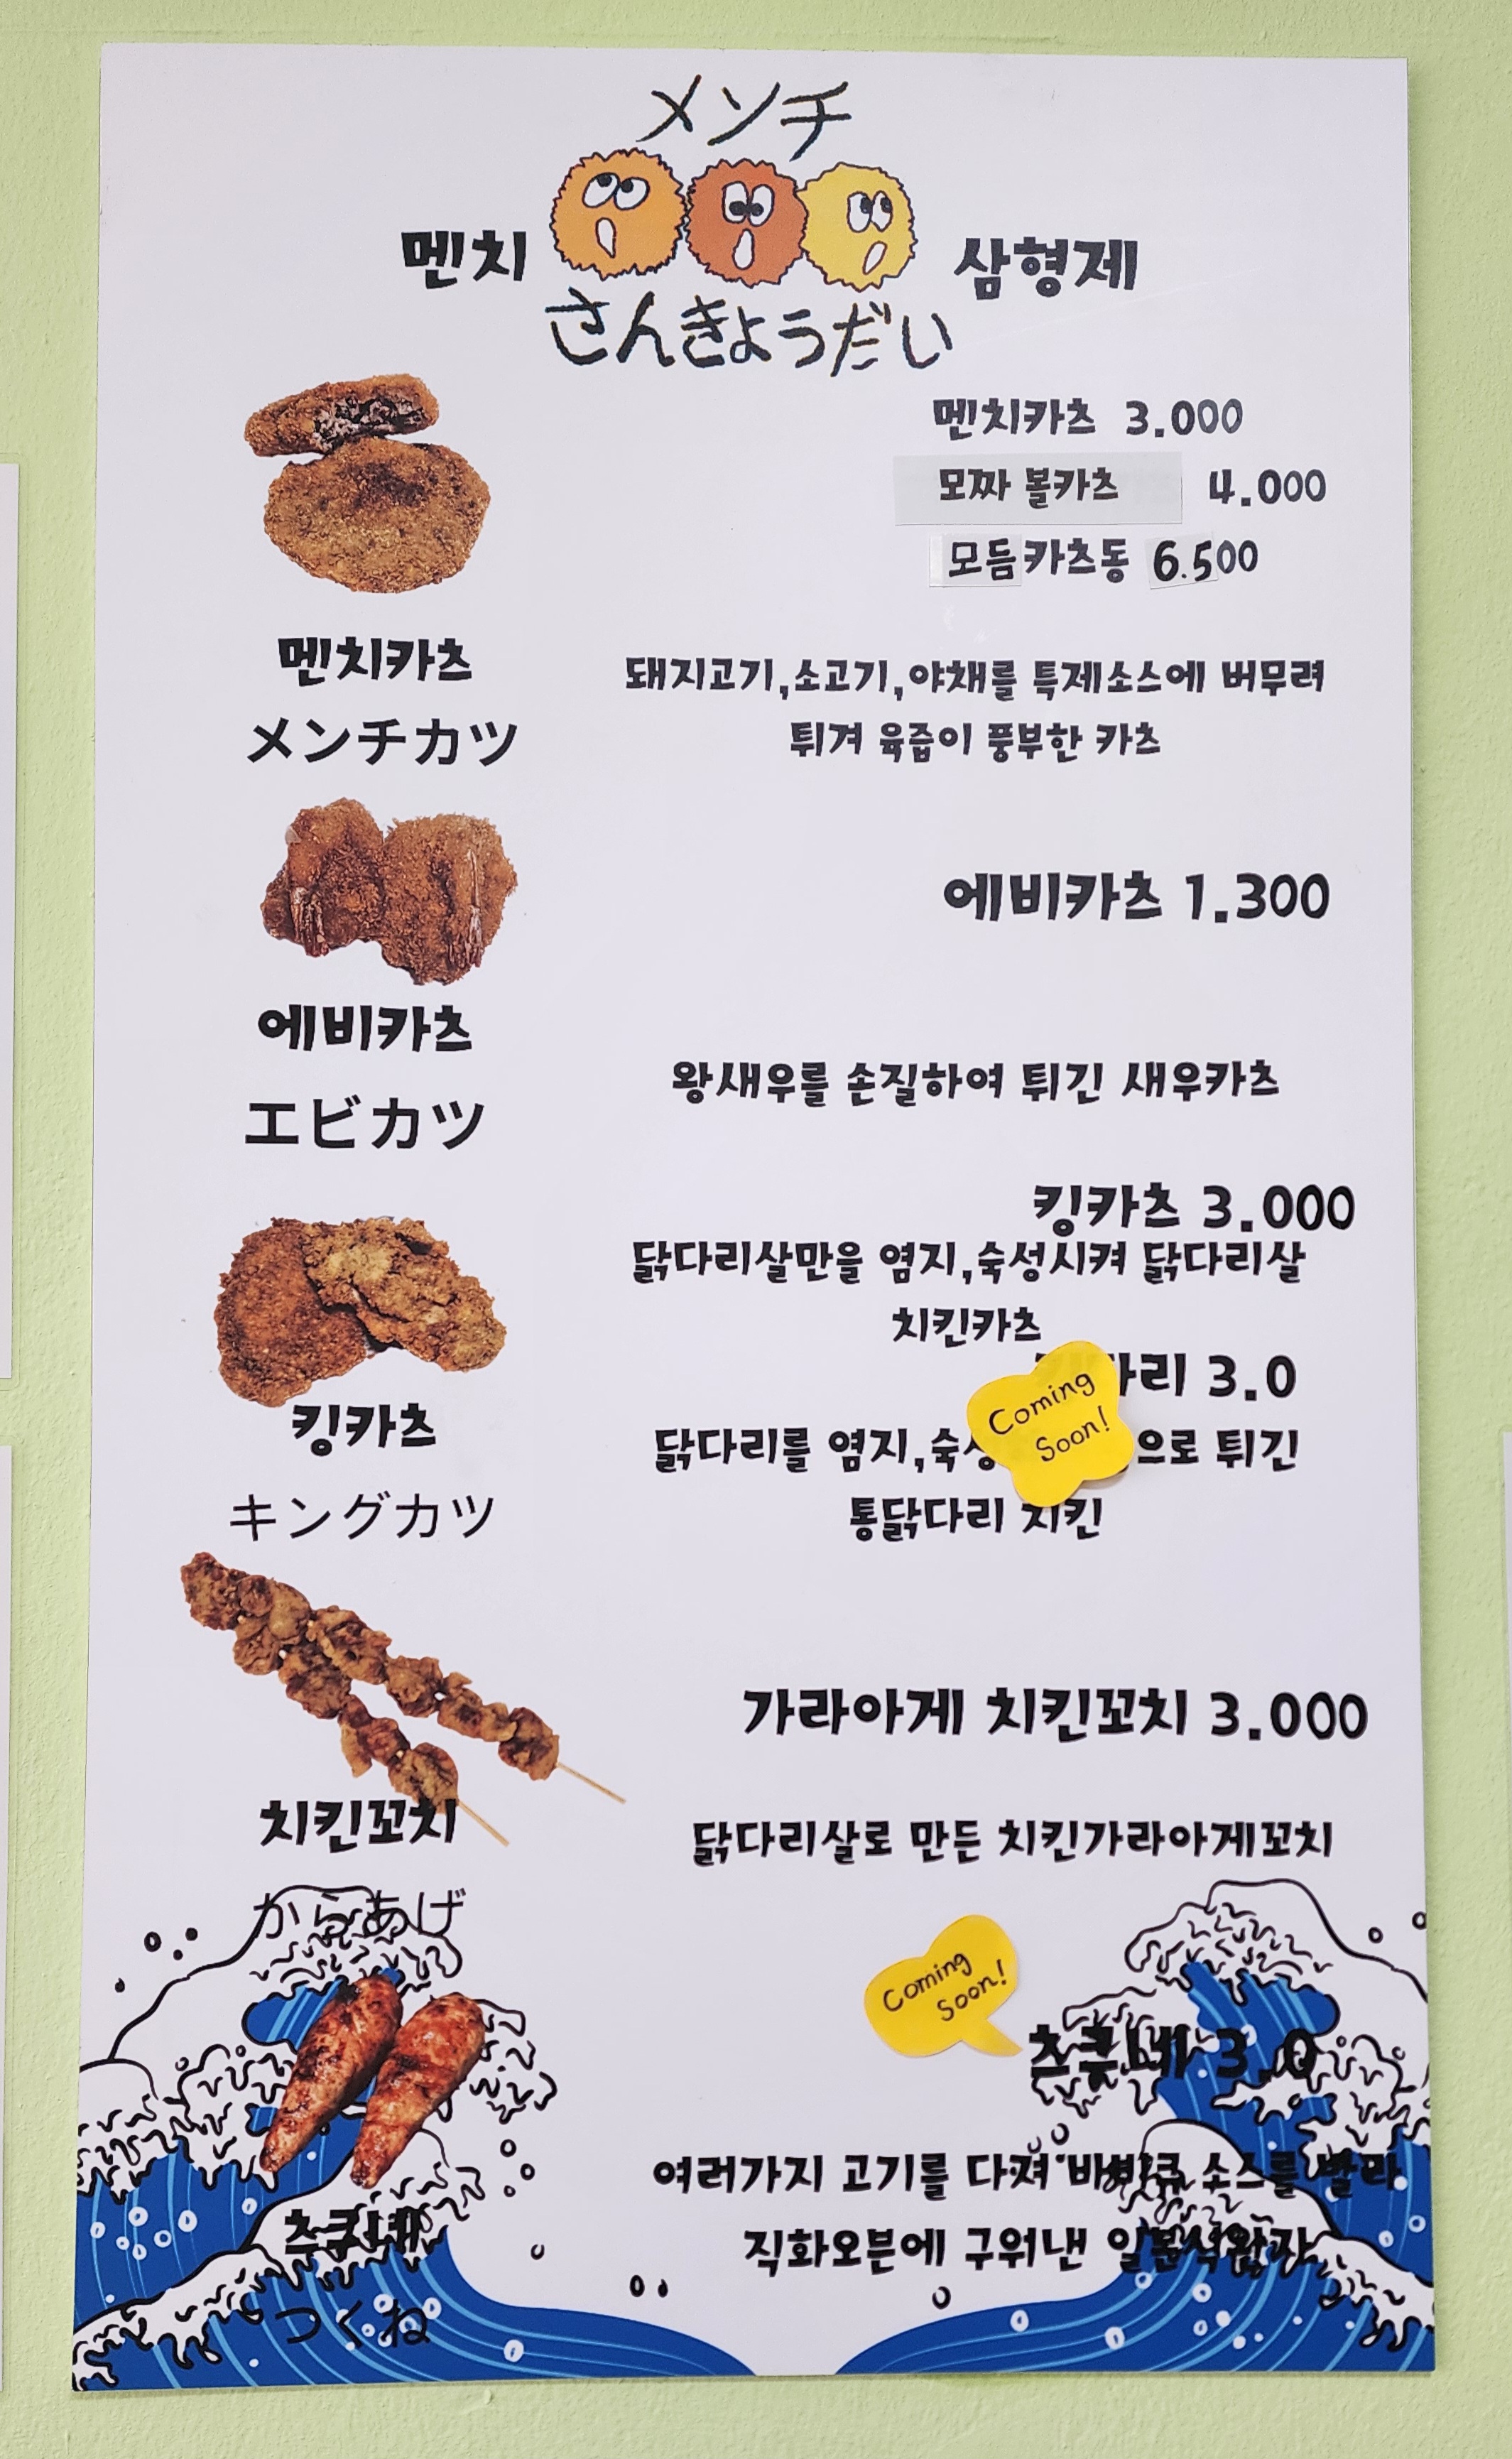 メンチ
멘치 삼형제
さんきょうだい
멘치카츠 3.000
모짜 볼카츠 4.000
모듬카츠동 6.500
멘치카츠
メンチカツ
돼지고기,소고기,야채를 특제소스에 버무려
튀겨 육즙이 풍부한 카츠
에비카츠 1.300
에비카츠
エビカツ
왕새우를 손질하여 튀긴 새우카츠
킹카츠 3.000
닭다리살만을 염지,숙성시켜 닭다리살
치킨카츠
킹카츠
キングカツ
Coming
Soon!
다리 3.0
닭다리를 염지, 으로 튀긴
통닭다리 치킨
가라아게 치킨꼬치 3.000
치킨꼬치
からあげ
닭다리살로 만든 치킨가라아게꼬치
Coming
Soon!
츠쿠네 3.0
츠쿠네
つくね
여러가지 고기를 다져 바비큐 소스를 발라
직화오븐에 구워낸 일본식완자